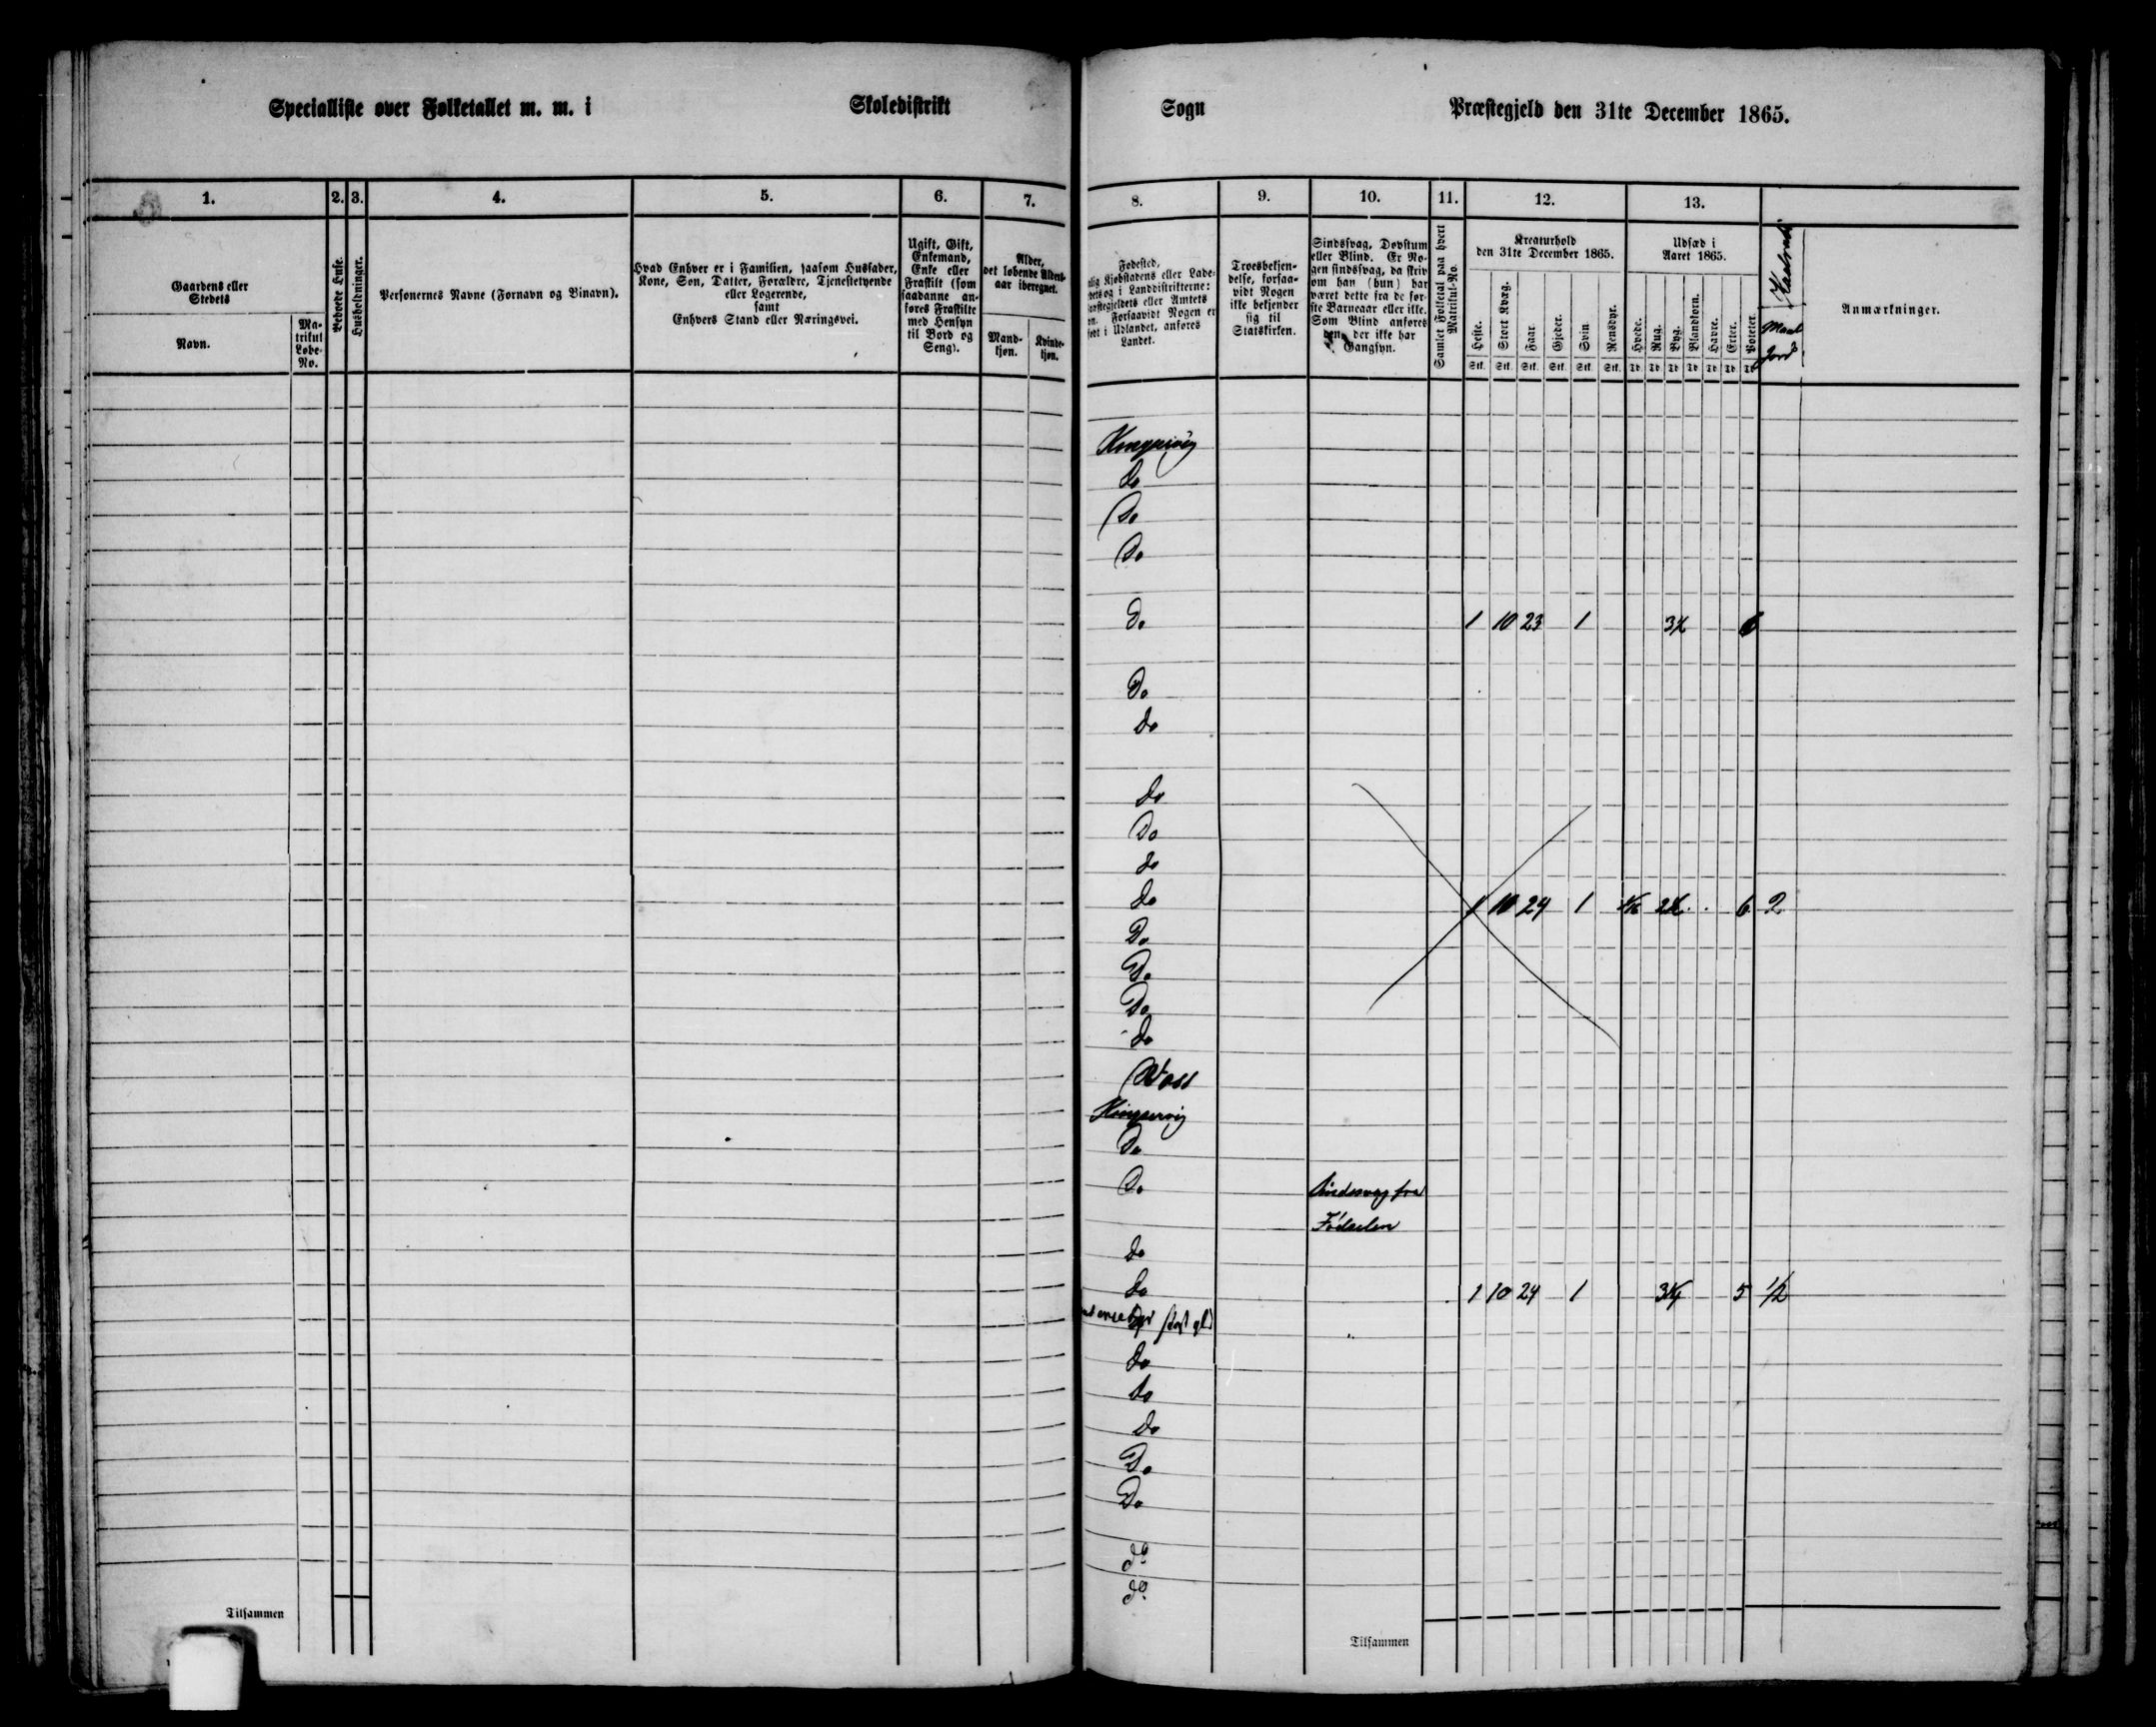 Specialliste over Folketallet m. m. i Skoledistrikt
Sogn Præstegjeld den 31te December 1865.
1. 2. 3. 4. 5. 6. 7.
Gaardens eller
Stedets
Navn.
Ma-
trikul
Løbe-
No.
Beboede Huse.
Husholdninger.
Personernes Navne (Fornavn og Binavn).
Hvad Enhver er i Familien, saasom Husfader,
Kone, Søn, Datter, Forældre, Tjenestetyende
eller Logerende,
samt
Enhvers Stand eller Næringsvei.
Ugift, Gift,
Enkemand,
Enke eller
Fraskilt (som
saadanne an-
føres Fraskilte
med Hensyn
til Bord og
Seng).
Alder,
det løbende Alders-
aar iberegnet.
Mand-
kjøn.
Kvinde-
kjøn.
Tilsammen
8. 9. 10. 11. 12. 13.
Fødested,
Kjøbstadens eller Lade-
og i Landdistrikterne:
eller Amtets
Forsaavidt Nogen er
i Udlandet, anføres
Landet.
Troesbekjen-
delse, forsaa-
vidt Nogen
ikke bekjender
sig til
Statskirken.
Sindssvag, Døvstum
eller Blind. Er No-
gen sindssvag, da skriv
om han (hun) har
været dette fra de før-
ste Barneaar eller ikke.
Som Blind anføres
den, der ikke har
Gangsyn.
Samlet Folketal paa hvert
Matrikul-No.
Kreaturhold
den 31te December 1865.
Heste. Stort Kvæg. Faar. Gjeder. Svin. Rensdyr.
Stk. Stk. Stk. Stk. Stk. Stk.
Udsæd i
Aaret 1865.
Hvede. Rug. Byg. Blandkorn. Havre. Erter. Poteter.
Td. Td. Td. Td. Td. Td. Td.
Maal
Jord
Anmærkninger.
Kingservig
do
Do
Do
Do 1 10 23 1
Do
do
do
Do
do
do 1 10 24 1 6 2
Do
Do
Do
do
Woss
Kingservig
Do
Do Sindssvag fra
Fødselen
do
do 1 10 24 1 5 1/2
do
do
do
Do
Do
do
do
Tilsammen